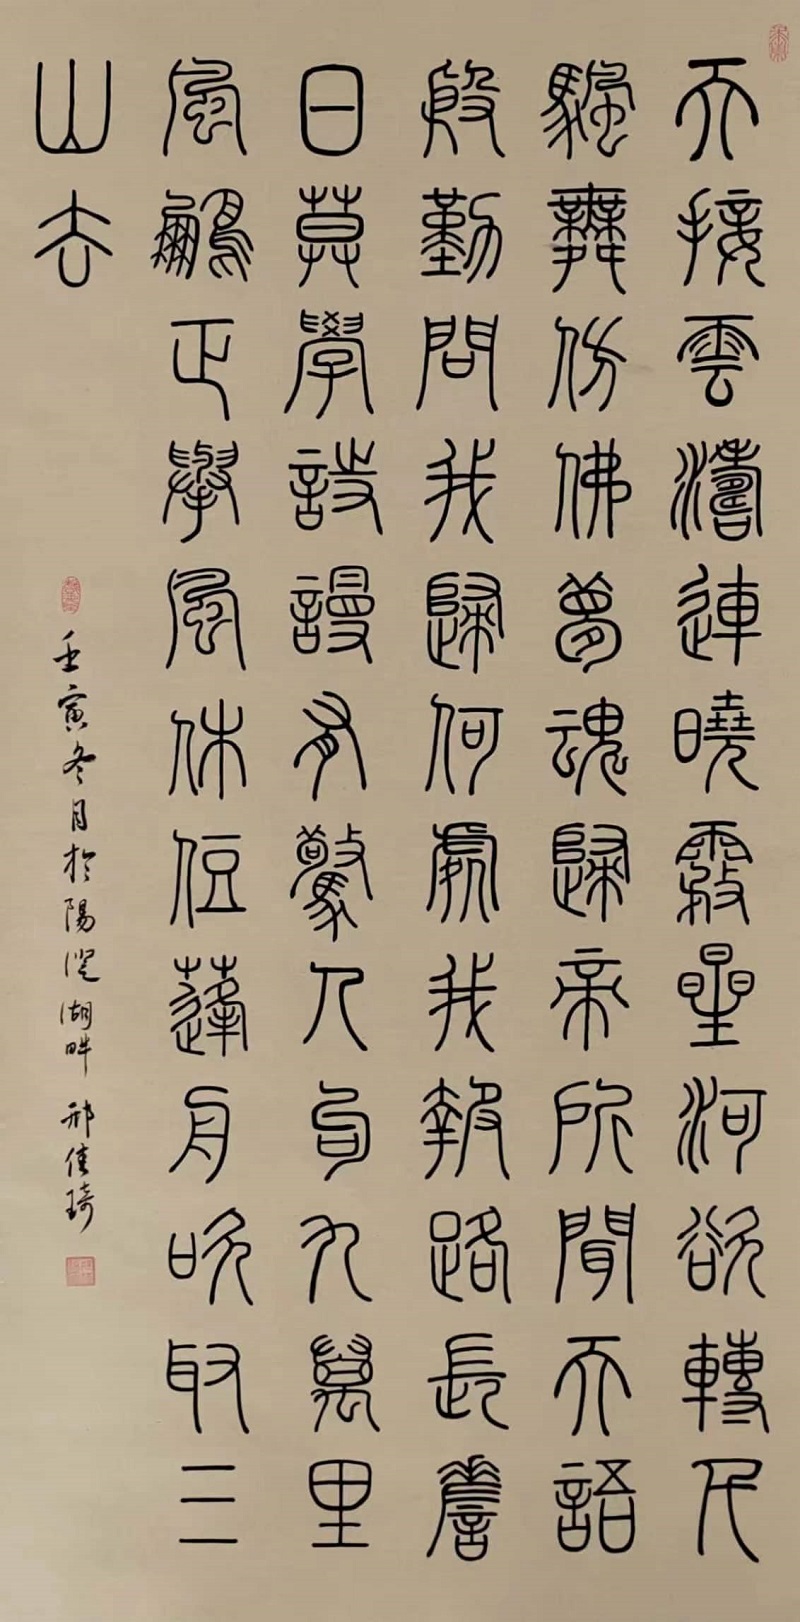 天接雲濤連曉霧星河欲轉千
颿舞仿佛夢魂歸帝所聞天語
殷勤問我歸何處我報路長嗟
日莫學詩謾有驚人句九萬里
風鵬正舉風休住蓬舟吹取三
山去
壬寅冬月於陽澄湖畔 邢佳琦